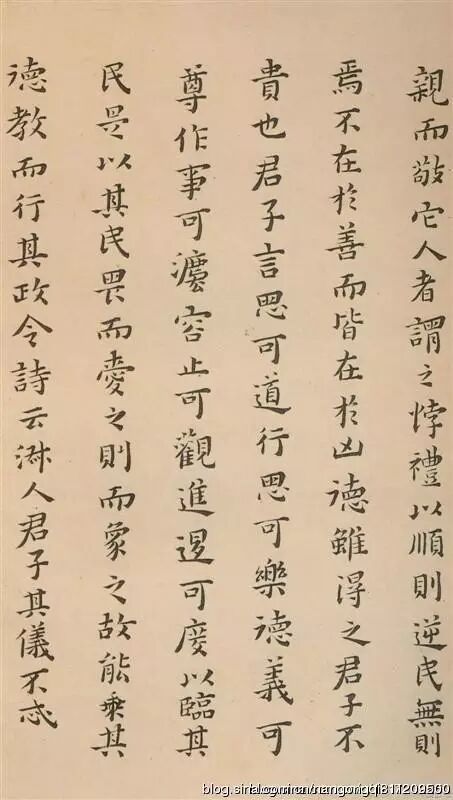 親而敬它人者謂之悖禮以順則逆民無則
焉不在於善而皆在於凶德雖得之君子不
貴也君子言思可道行思可樂德義可
尊作事可灋容止可觀進退可度以臨其
民是以其民畏而愛之則而象之故能乘其
德教而行其政令詩云淑人君子其儀不忒